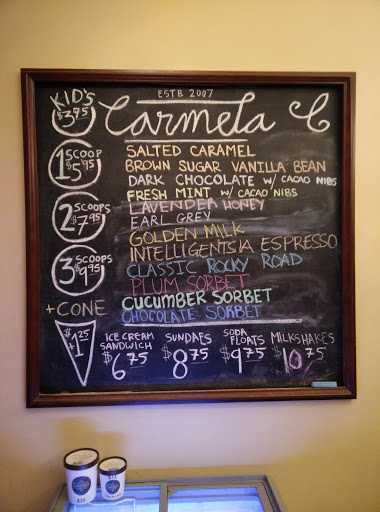 ESTB 2007
Carmela C
KID'S
$3.75
1 SCOOP
$5.95
2 SCOOPS
$7.95
3 SCOOPS
$9.95
+ CONE
$1.25
SALTED CARAMEL
BROWN SUGAR VANILLA BEAN
DARK CHOCOLATE w/ CACAO NIBS
FRESH MINT w/ CACAO NIBS
LAVENDER HONEY
EARL GREY
GOLDEN MILK
INTELLIGENTSIA ESPRESSO
CLASSIC ROCKY ROAD
PLUM SORBET
CUCUMBER SORBET
CHOCOLATE SORBET
ICE CREAM
SANDWICH
$6.75
SUNDAES
$8.75
SODA
FLOATS
$9.75
MILKSHAKES
$10.75